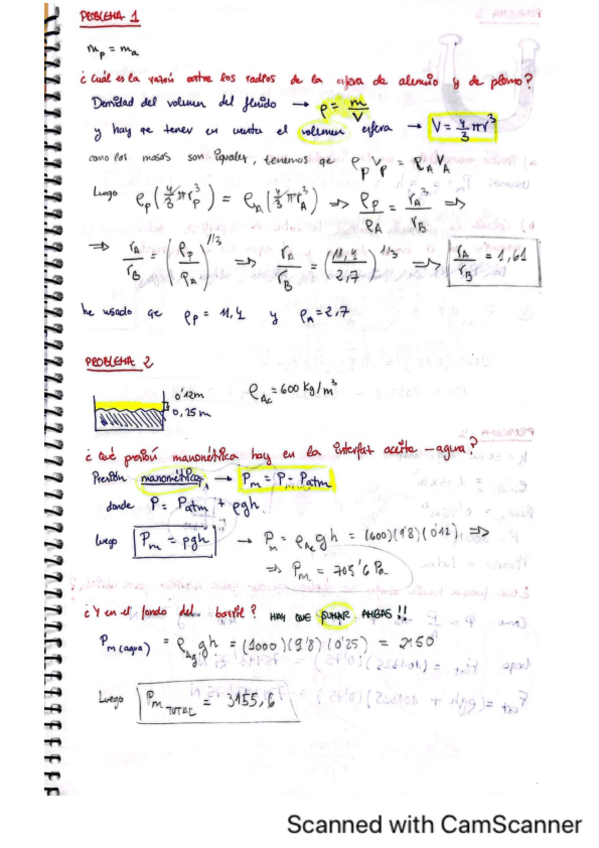 PROBLEMA 1
m_p = m_a
¿Cuál es la razón entre los radios de la esfera de aluminio y de plomo?
Densidad del volumen del fluido → ρ = m/V
y hay qe tener en cuenta el volumen esfera → V = 4/3 πr³
como las masas son iguales, tenemos qe ρ_p V_p = ρ_A V_A
Luego ρ_p (4/3 πr_p³) = ρ_A (4/3 πr_A³) => ρ_p/ρ_A = r_A³/r_B =>
=> r_A/r_B = (ρ_p/ρ_A)^1/3 => r_A/r_B = (11,4/2,7)^1/3 => r_A/r_B = 1,61
he usado qe ρ_p = 11,4 y ρ_A = 2,7
PROBLEMA 2
0'12m
0,25m
ρ_Ac = 600 kg/m³
¿Qué presión manométrica hay en la interfaz aceite-agua?
Presión manométrica → P_m = P - P_atm
donde P = P_atm + ρgh
luego P_m = ρgh → P_m = ρ_Ac g h = (600)(9'8)(0'12) =>
=> P_m = 705'6 Pa
¿Y en el fondo del barril? HAY QUE SUMAR AMBAS!!
P_m(agua) = ρ_Ag gh = (1000)(9'8)(0'25) = 2450
Luego P_m TOTAL = 3155,6
Scanned with CamScanner